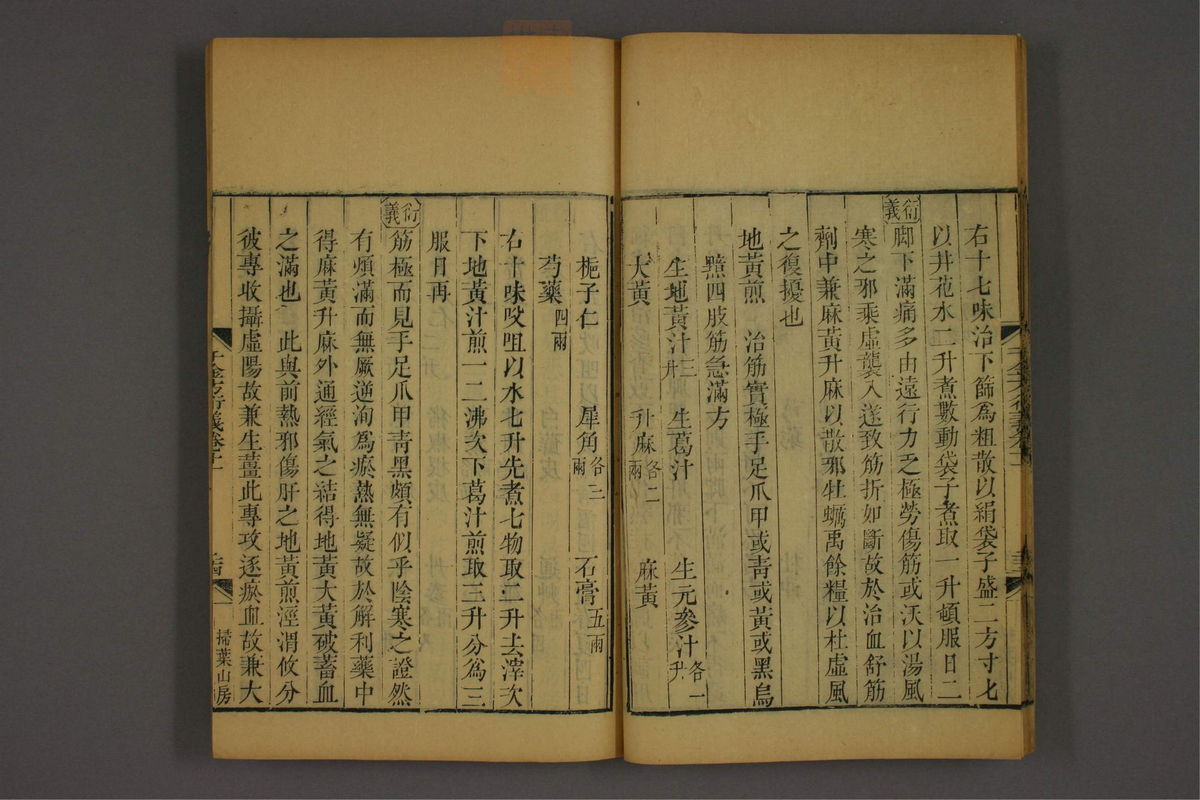 右十七味治下篩爲粗散以絹袋子盛二方寸匕
以井花水二升煮數動袋子煮取一升頓服日二
衍義
脚下滿痛多由遠行力乏極勞傷筋或沃以湯風
寒之邪乘虛襲入遂致筋折如斷故於治血舒筋
劑中兼麻黃升麻以散邪牡蠣禹餘糧以杜虛風
之復擾也
地黃煎 治筋實極手足爪甲或靑或黃或黑烏
黯四肢筋急滿方
生地黃汁三升 生葛汁 生元參汁各一升
大黃 升麻各二兩 麻黃
梔子仁 犀角各三兩 石膏五兩
芍藥四兩
右十味㕮咀以水七升先煮七物取二升去滓次
下地黃汁煎一二沸次下葛汁煎取三升分爲三
服日再
衍義
筋極而見手足爪甲靑黑頗有似乎陰寒之證然
有煩滿而無厥逆洵爲瘀熱無疑故於解利藥中
得麻黃升麻外通經氣之結得地黃大黃破蓄血
之滿也 此與前熱邪傷肝之地黃煎涇渭攸分
彼專收攝虛陽故兼生薑此專攻逐瘀血故兼大
千金方衍義卷十一
掃葉山房